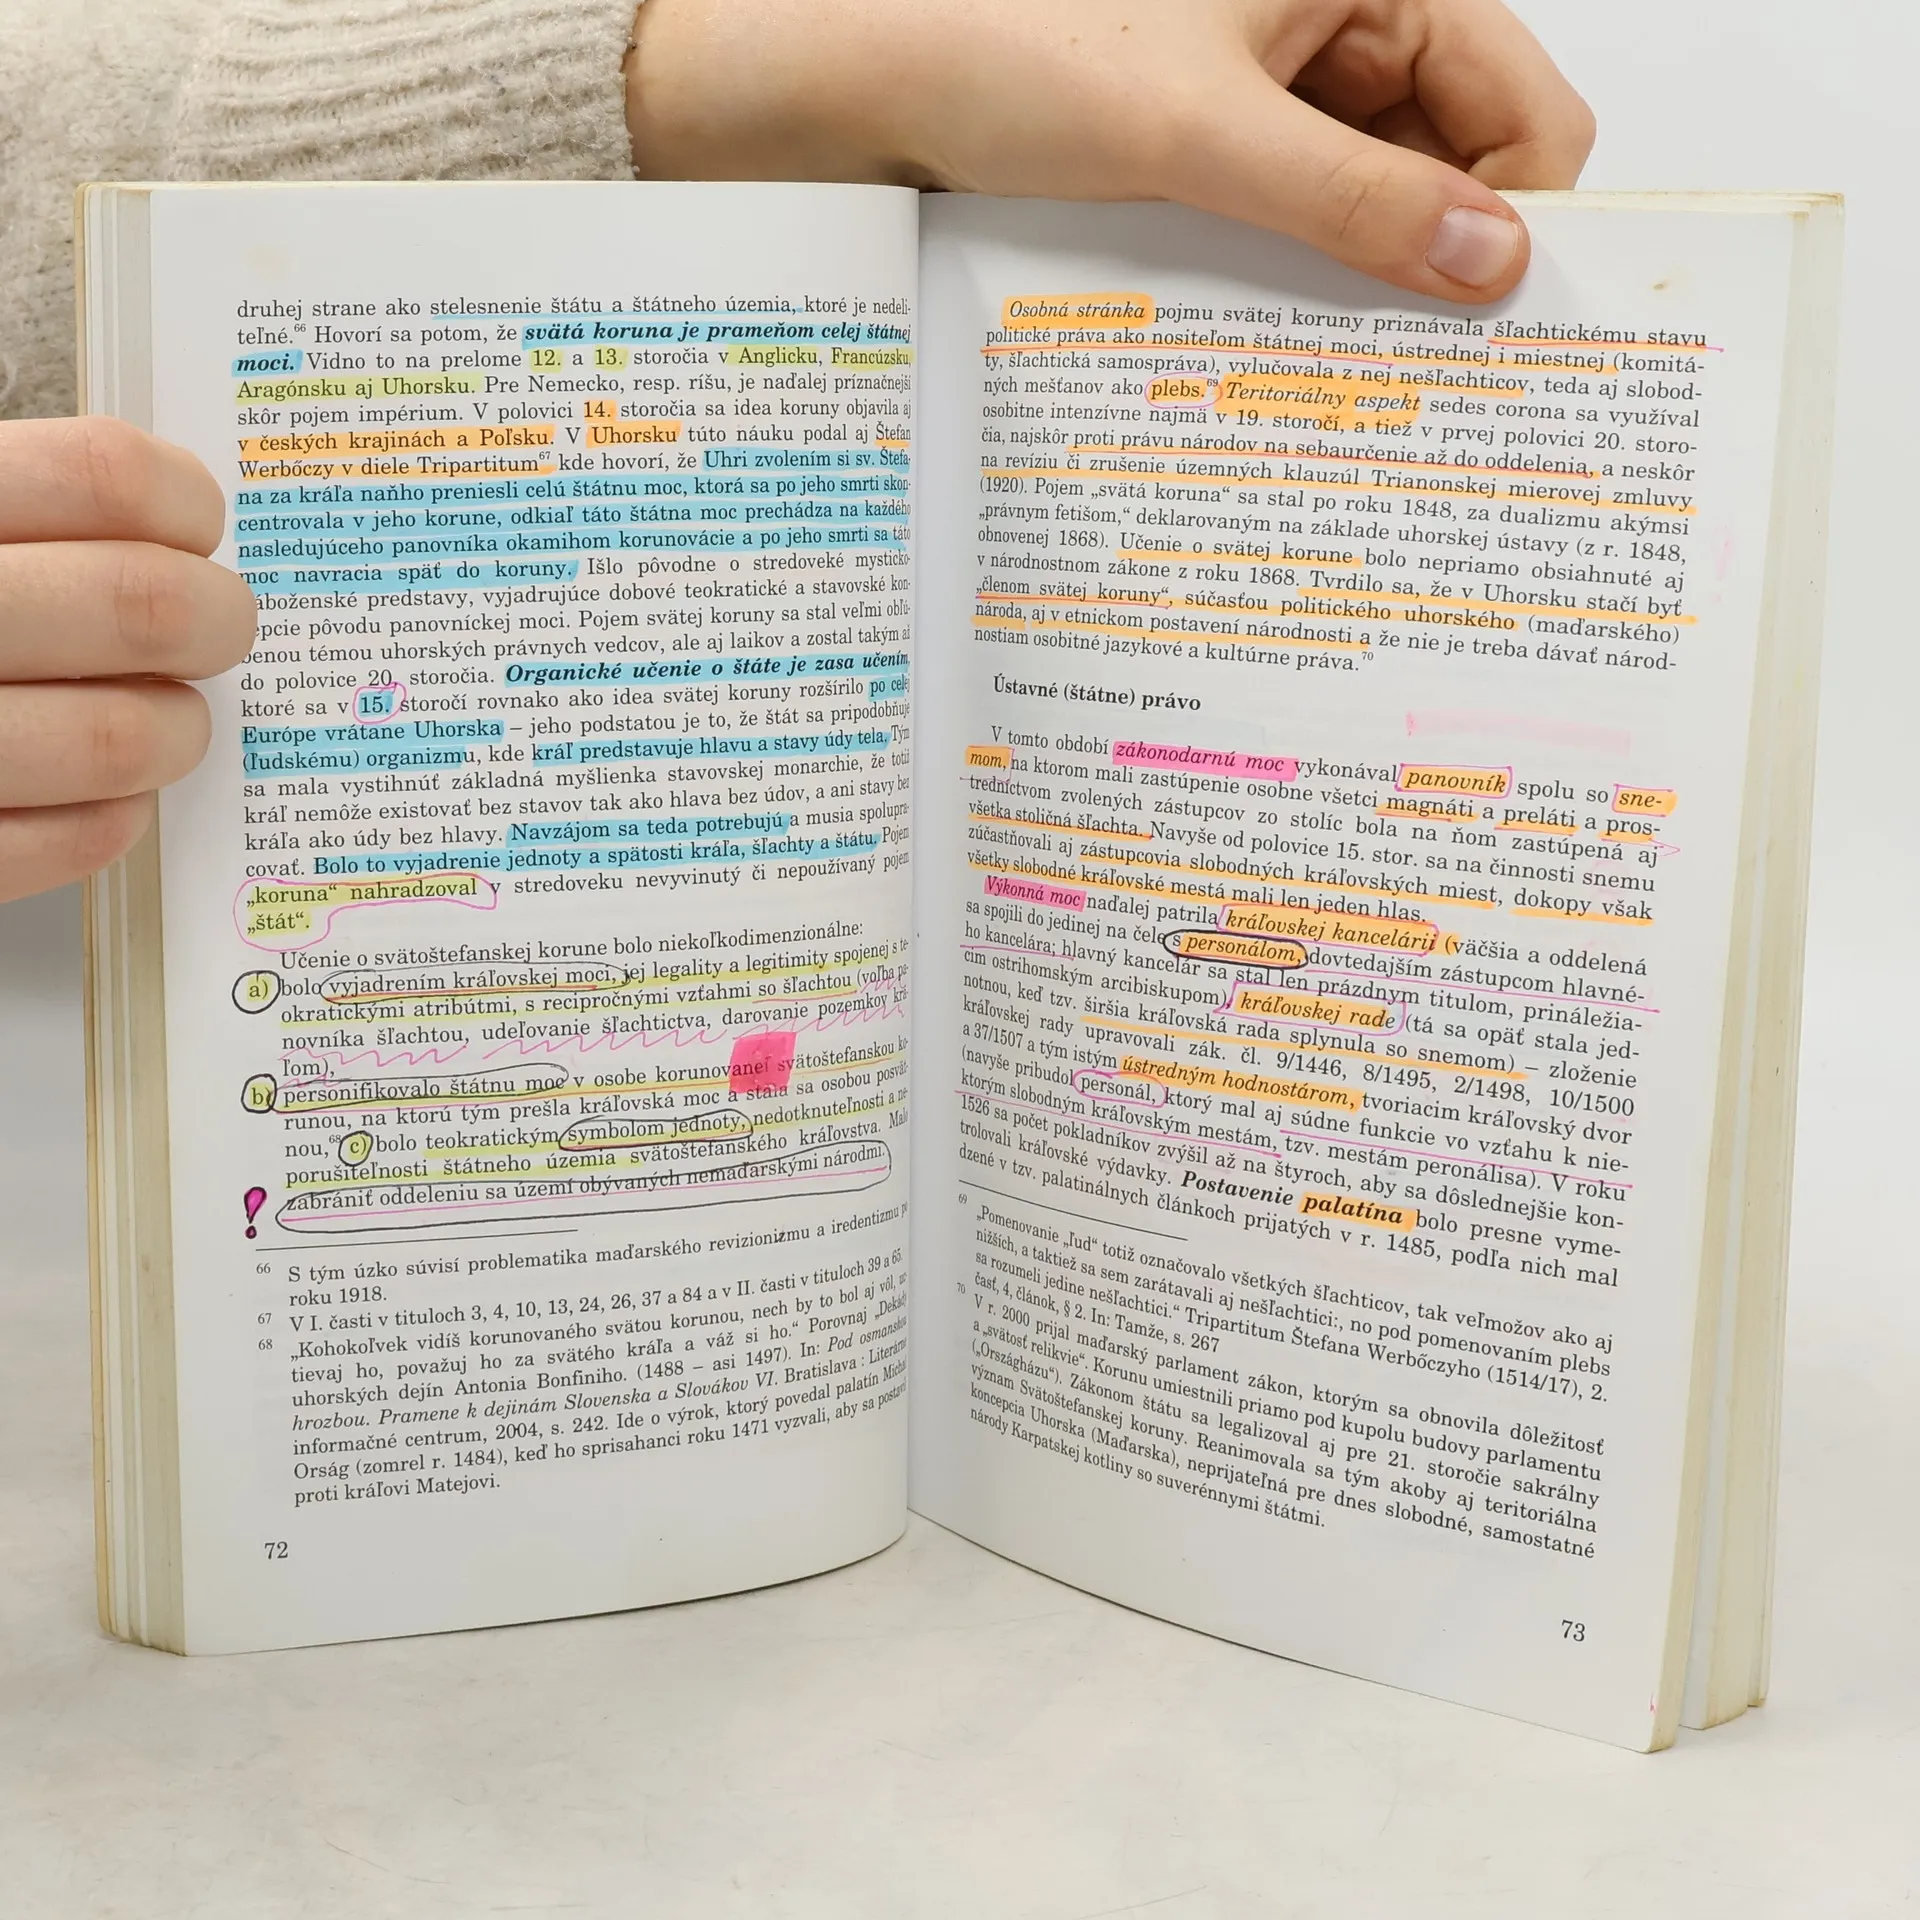 druhej strane ako stelesnenie štátu a štátneho územia, ktoré je nedeli-
teľné.66 Hovorí sa potom, že svätá koruna je prameňom celej štátnej
moci. Vidno to na prelome 12. a 13. storočia v Anglicku, Francúzsku,
Aragónsku aj Uhorsku. Pre Nemecko, resp. ríšu, je naďalej príznačnejší
skôr pojem impérium. V polovici 14. storočia sa idea koruny objavila aj
v českých krajinách a Poľsku. V Uhorsku túto náuku podal aj Štefan
Werbőczy v diele Tripartitum67 kde hovorí, že Uhri zvolením si sv. Štefa-
na za kráľa naňho preniesli celú štátnu moc, ktorá sa po jeho smrti skon-
centrovala v jeho korune, odkiaľ táto štátna moc prechádza na každého
nasledujúceho panovníka okamihom korunovácie a po jeho smrti sa táto
moc navracia späť do koruny. Išlo pôvodne o stredoveké mysticko-
áboženské predstavy, vyjadrujúce dobové teokratické a stavovské kon-
epcie pôvodu panovníckej moci. Pojem svätej koruny sa stal veľmi obľú-
benou témou uhorských právnych vedcov, ale aj laikov a zostal takým až
do polovice 20. storočia. Organické učenie o štáte je zasa učením,
ktoré sa v 15. storočí rovnako ako idea svätej koruny rozšírilo po celej
Európe vrátane Uhorska – jeho podstatou je to, že štát sa pripodobňuje
(ľudskému) organizmu, kde kráľ predstavuje hlavu a stavy údy tela. Tým
sa mala vystihnúť základná myšlienka stavovskej monarchie, že totiž
kráľ nemôže existovať bez stavov tak ako hlava bez údov, a ani stavy bez
kráľa ako údy bez hlavy. Navzájom sa teda potrebujú a musia spolupra-
covať. Bolo to vyjadrenie jednoty a spätosti kráľa, šľachty a štátu. Pojem
„koruna“ nahradzoval v stredoveku nevyvinutý či nepoužívaný pojem
„štát“.
Učenie o svätoštefanskej korune bolo niekoľkodimenzionálne:
a) bolo vyjadrením kráľovskej moci, jej legality a legitimity spojenej s te-
okratickými atribútmi, s recipročnými vzťahmi so šľachtou (voľba pa-
novníka šľachtou, udeľovanie šľachtictva, darovanie pozemkov krá-
ľom),
b) personifikovalo štátnu moc v osobe korunovanej svätoštefanskou ko-
runou, na ktorú tým prešla kráľovská moc a stala sa osobou posvät-
nou,68 c) bolo teokratickým symbolom jednoty, nedotknuteľnosti a ne-
porušiteľnosti štátneho územia svätoštefanského kráľovstva. Malo
zabrániť oddeleniu sa území obývaných nemaďarskými národmi.
66 S tým úzko súvisí problematika maďarského revizionizmu a iredentizmu po
roku 1918.
67 V I. časti v tituloch 3, 4, 10, 13, 24, 26, 37 a 84 a v II. časti v tituloch 39 a 65.
68 „Kohokoľvek vidíš korunovaného svätou korunou, nech by to bol aj vôl, uc-
tievaj ho, považuj ho za svätého kráľa a váž si ho.“ Porovnaj „Dekády
uhorských dejín Antonia Bonfiniho. (1488 – asi 1497). In: Pod osmanskou
hrozbou. Pramene k dejinám Slovenska a Slovákov VI. Bratislava : Literárne
informačné centrum, 2004, s. 242. Ide o výrok, ktorý povedal palatín Michal
Orság (zomrel r. 1484), keď ho sprisahanci roku 1471 vyzvali, aby sa postavil
proti kráľovi Matejovi.
72
Osobná stránka pojmu svätej koruny priznávala šľachtickému stavu
politické práva ako nositeľom štátnej moci, ústrednej i miestnej (komitá-
ty, šľachtická samospráva), vylučovala z nej nešľachticov, teda aj slobod-
ných mešťanov ako plebs.69 Teritoriálny aspekt sedes corona sa využíval
osobitne intenzívne najmä v 19. storočí, a tiež v prvej polovici 20. storo-
čia, najskôr proti právu národov na sebaurčenie až do oddelenia, a neskôr
na revíziu či zrušenie územných klauzúl Trianonskej mierovej zmluvy
(1920). Pojem „svätá koruna“ sa stal po roku 1848, za dualizmu akýmsi
„právnym fetišom,“ deklarovaným na základe uhorskej ústavy (z r. 1848,
obnovenej 1868). Učenie o svätej korune bolo nepriamo obsiahnuté aj
v národnostnom zákone z roku 1868. Tvrdilo sa, že v Uhorsku stačí byť
„členom svätej koruny“, súčasťou politického uhorského (maďarského)
národa, aj v etnickom postavení národnosti a že nie je treba dávať národ-
nostiam osobitné jazykové a kultúrne práva.70
Ústavné (štátne) právo
V tomto období zákonodarnú moc vykonával panovník spolu so sne-
mom, na ktorom mali zastúpenie osobne všetci magnáti a preláti a pros-
tredníctvom zvolených zástupcov zo stolíc bola na ňom zastúpená aj
všetka stoličná šľachta. Navyše od polovice 15. stor. sa na činnosti snemu
zúčastňovali aj zástupcovia slobodných kráľovských miest, dokopy však
všetky slobodné kráľovské mestá mali len jeden hlas.
Výkonná moc naďalej patrila kráľovskej kancelárii (väčšia a oddelená
sa spojili do jedinej na čele s personálom, dovtedajším zástupcom hlavné-
ho kancelára; hlavný kancelár sa stal len prázdnym titulom, prináležia-
cim ostrihomským arcibiskupom), kráľovskej rade (tá sa opäť stala jed-
notnou, keď tzv. širšia kráľovská rada splynula so snemom) – zloženie
kráľovskej rady upravovali zák. čl. 9/1446, 8/1495, 2/1498, 10/1500
a 37/1507 a tým istým ústredným hodnostárom, tvoriacim kráľovský dvor
(navyše pribudol personál, ktorý mal aj súdne funkcie vo vzťahu k nie-
ktorým slobodným kráľovským mestám, tzv. mestám peronálisa). V roku
1526 sa počet pokladníkov zvýšil až na štyroch, aby sa dôslednejšie kon-
trolovali kráľovské výdavky. Postavenie palatína bolo presne vyme-
dzené v tzv. palatinálnych článkoch prijatých v r. 1485, podľa nich mal
69 „Pomenovanie „ľud“ totiž označovalo všetkých šľachticov, tak veľmožov ako aj
nižších, a taktiež sa sem zarátavali aj nešľachtici:, no pod pomenovaním plebs
sa rozumeli jedine nešľachtici.“ Tripartitum Štefana Werbőczyho (1514/17), 2.
časť, 4, článok, § 2. In: Tamže, s. 267
70 V r. 2000 prijal maďarský parlament zákon, ktorým sa obnovila dôležitosť
a „svätosť relikvie“. Korunu umiestnili priamo pod kupolu budovy parlamentu
(„Országházu“). Zákonom štátu sa legalizoval aj pre 21. storočie sakrálny
význam Svätoštefanskej koruny. Reanimovala sa tým akoby aj teritoriálna
koncepcia Uhorska (Maďarska), neprijateľná pre dnes slobodné, samostatné
národy Karpatskej kotliny so suverénnymi štátmi.
73